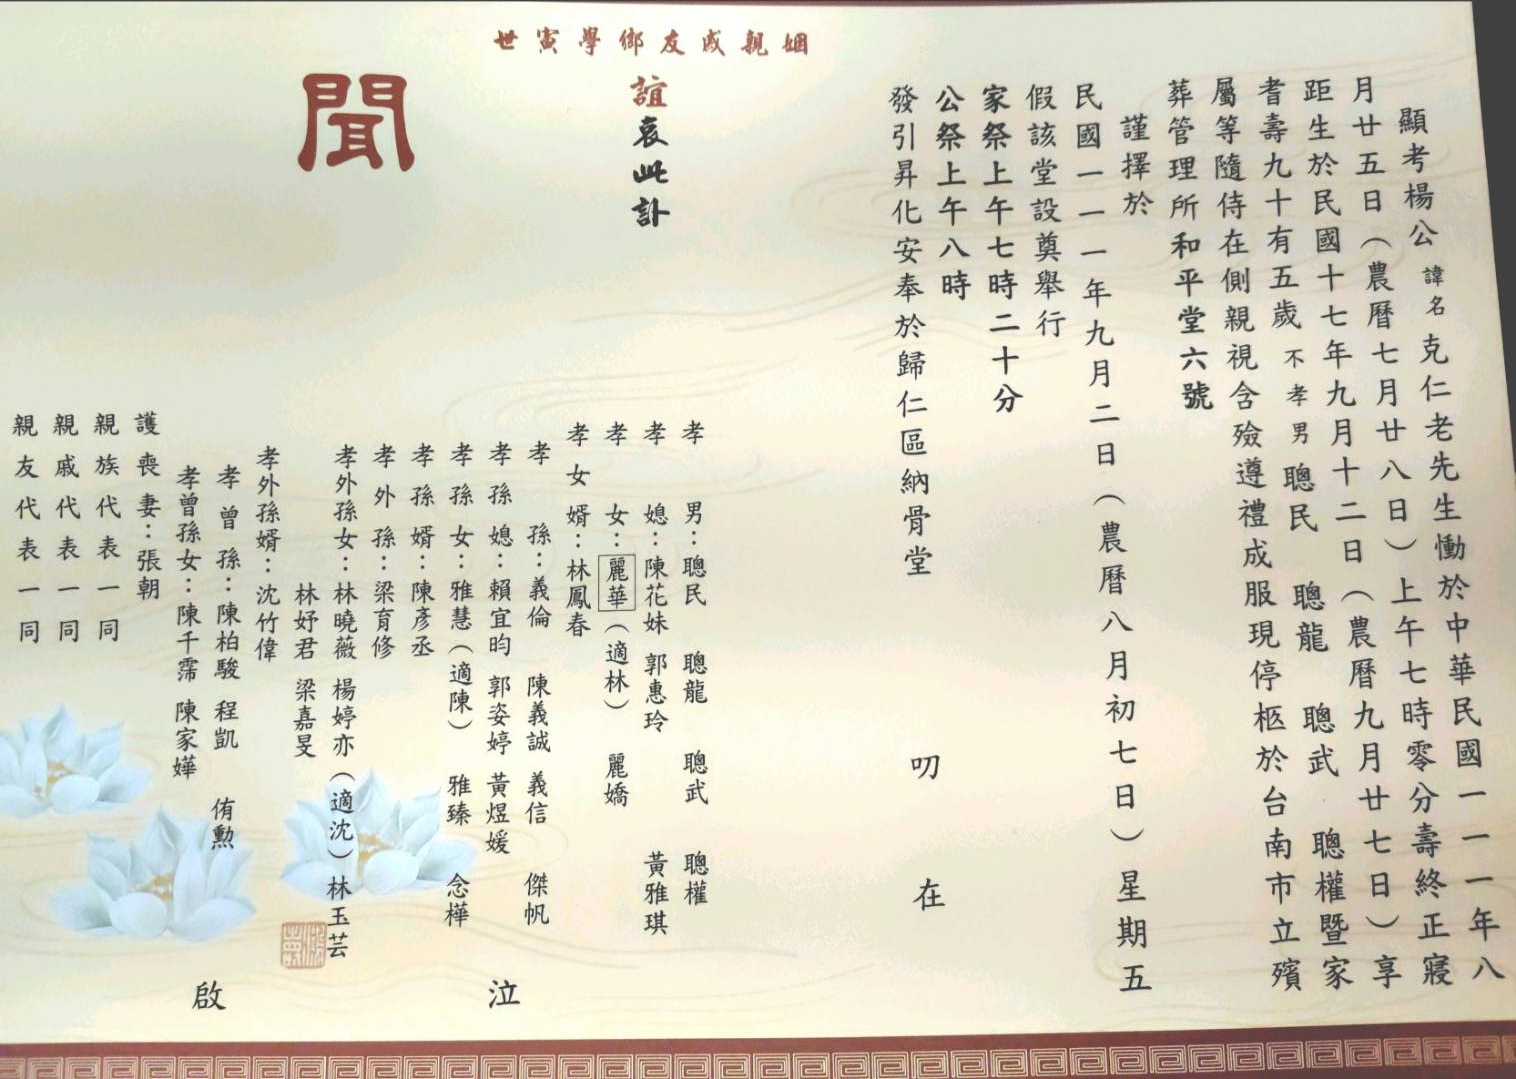 顯考楊公諱名克仁老先生慟於中華民國一一一年八
月廿五日（農曆七月廿八日）上午七時零分壽終正寢
距生於民國十七年九月十二日（農曆九月廿七日）享
耆壽九十有五歲不孝男聰民 聰龍 聰武 聰權暨家
屬等隨侍在側親視含殮遵禮成服現停柩於台南市立殯
葬管理所和平堂六號
謹擇於
民國一一一年九月二日（農曆八月初七日）星期五
假該堂設奠舉行
家祭上午七時二十分
公祭上午八時
發引昇化安奉於歸仁區納骨堂
叨在
姻親戚友鄉學寅世
誼哀此訃
聞
孝 男：聰民 聰龍 聰武 聰權
孝 媳：陳花妹 郭惠玲 黃雅琪
孝 女：麗華（適林） 麗嬌
孝女婿：林鳳春
孝 孫：義倫 陳義誠 義信 傑帆
孝孫媳：賴宜昀 郭姿婷 黃煜媛
孝孫女：雅慧（適陳） 雅臻 念樺
孝孫婿：陳彥丞
孝外孫：梁育修
孝外孫女：林曉薇 楊婷亦（適沈）林玉芸
林妤君 梁嘉旻
孝外孫婿：沈竹偉
孝曾孫：陳柏駿 程凱 侑勲
孝曾孫女：陳千霈 陳家嬅
護喪妻：張朝
親族代表一同
親戚代表一同
親友代表一同
泣
啟